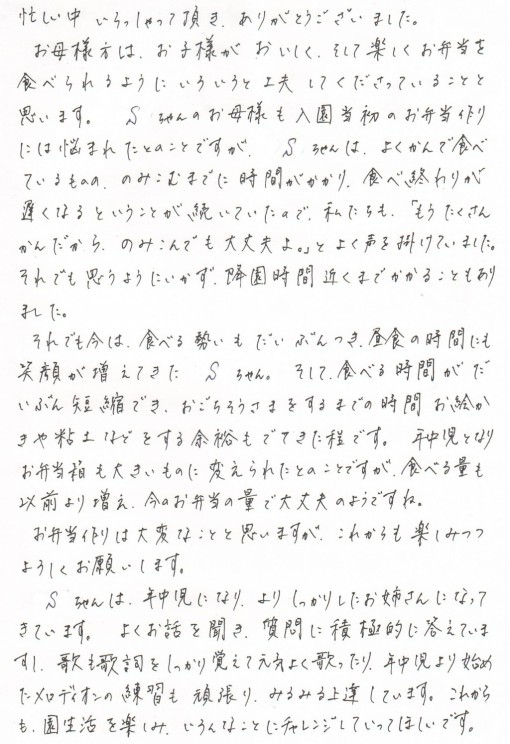 忙しい中 いらっしゃって頂き、ありがとうございました。
お母様方は、お子様が おいしく、そして楽しくお弁当を
食べられるようにいろいろと工夫 してくださっていることと
思います。 Sちゃんのお母様も入園当初のお弁当作り
には悩まれたとのことですが、 Sちゃんは、よくかんで食べ
ているものの、のみこむまでに時間がかかり、食べ終わりが
遅くなるということが続いていたので、私たちも、「もうたくさん
かんだから、のみこんでも大丈夫よ。」とよく声を掛けていました。
それでも思うようにいかず、降園時間近くまでかかることもあり
ました。
それでも今は、食べる勢いもだいぶんつき、昼食の時間にも
笑顔が増えてきた Sちゃん。そして、食べる時間がだ
いぶん短縮でき、おごちそうさまをするまでの時間 お絵か
きや粘土などをする余裕もでてきた程です。 年中児となり
お弁当箱も大きいものに変えられたとのことですが、食べる量も
以前より増え、今のお弁当の量で大丈夫のようですね。
お弁当作りは大変なことと思いますが、これからも楽しみつつ
よろしくお願いします。
Sちゃんは、年中児になり、よりしっかりしたお姉さんになって
きています。 よくお話を聞き、質問に積極的に答えていま
すし、歌も歌詞をしっかり覚えて元気よく歌ったり、年中児より始め
たメロディオンの練習も頑張り、みるみる上達しています。これから
も、園生活を楽しみ、いろんなことにチャレンジしていってほしいです。